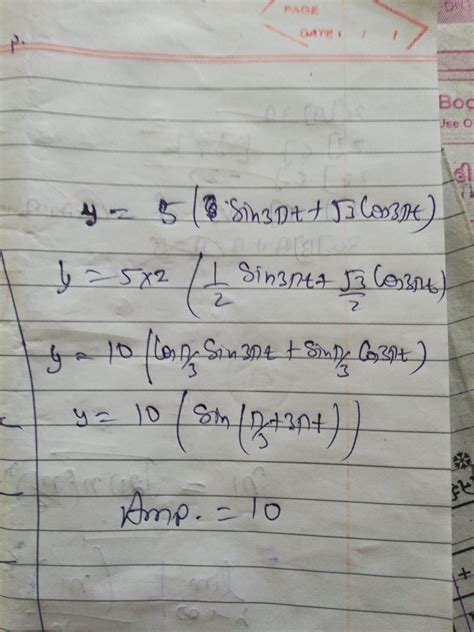 PAGE
DATE: / /
P.
Boo
Jee O
y = 5 (Sin3πt + √3 Cos3πt)
y = 5×2 (1/2 Sin3πt + √3/2 Cos3πt)
y = 10 (Cosπ/3 Sin3πt + Sinπ/3 Cos3πt)
y = 10 (Sin(π/3+3πt))
Amp. = 10